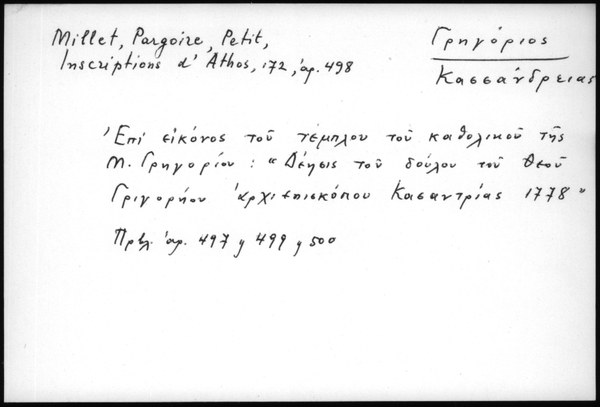 Millet, Pargoire, Petit,
Inscriptions d'Athos, 172, ἀρ. 498
Γρηγόριος
Κασσάνδρειας
Ἐπί εἰκόνος τοῦ τέμπλου τοῦ καθολικοῦ τῆς
Μ. Γρηγορίου: "Δέησις τοῦ δούλου τοῦ Θεοῦ
Γριγορήου ἀρχιεπισκόπου Κασαντρίας 1778"
Πρβλ. ἀρ. 497 y 499 y 500